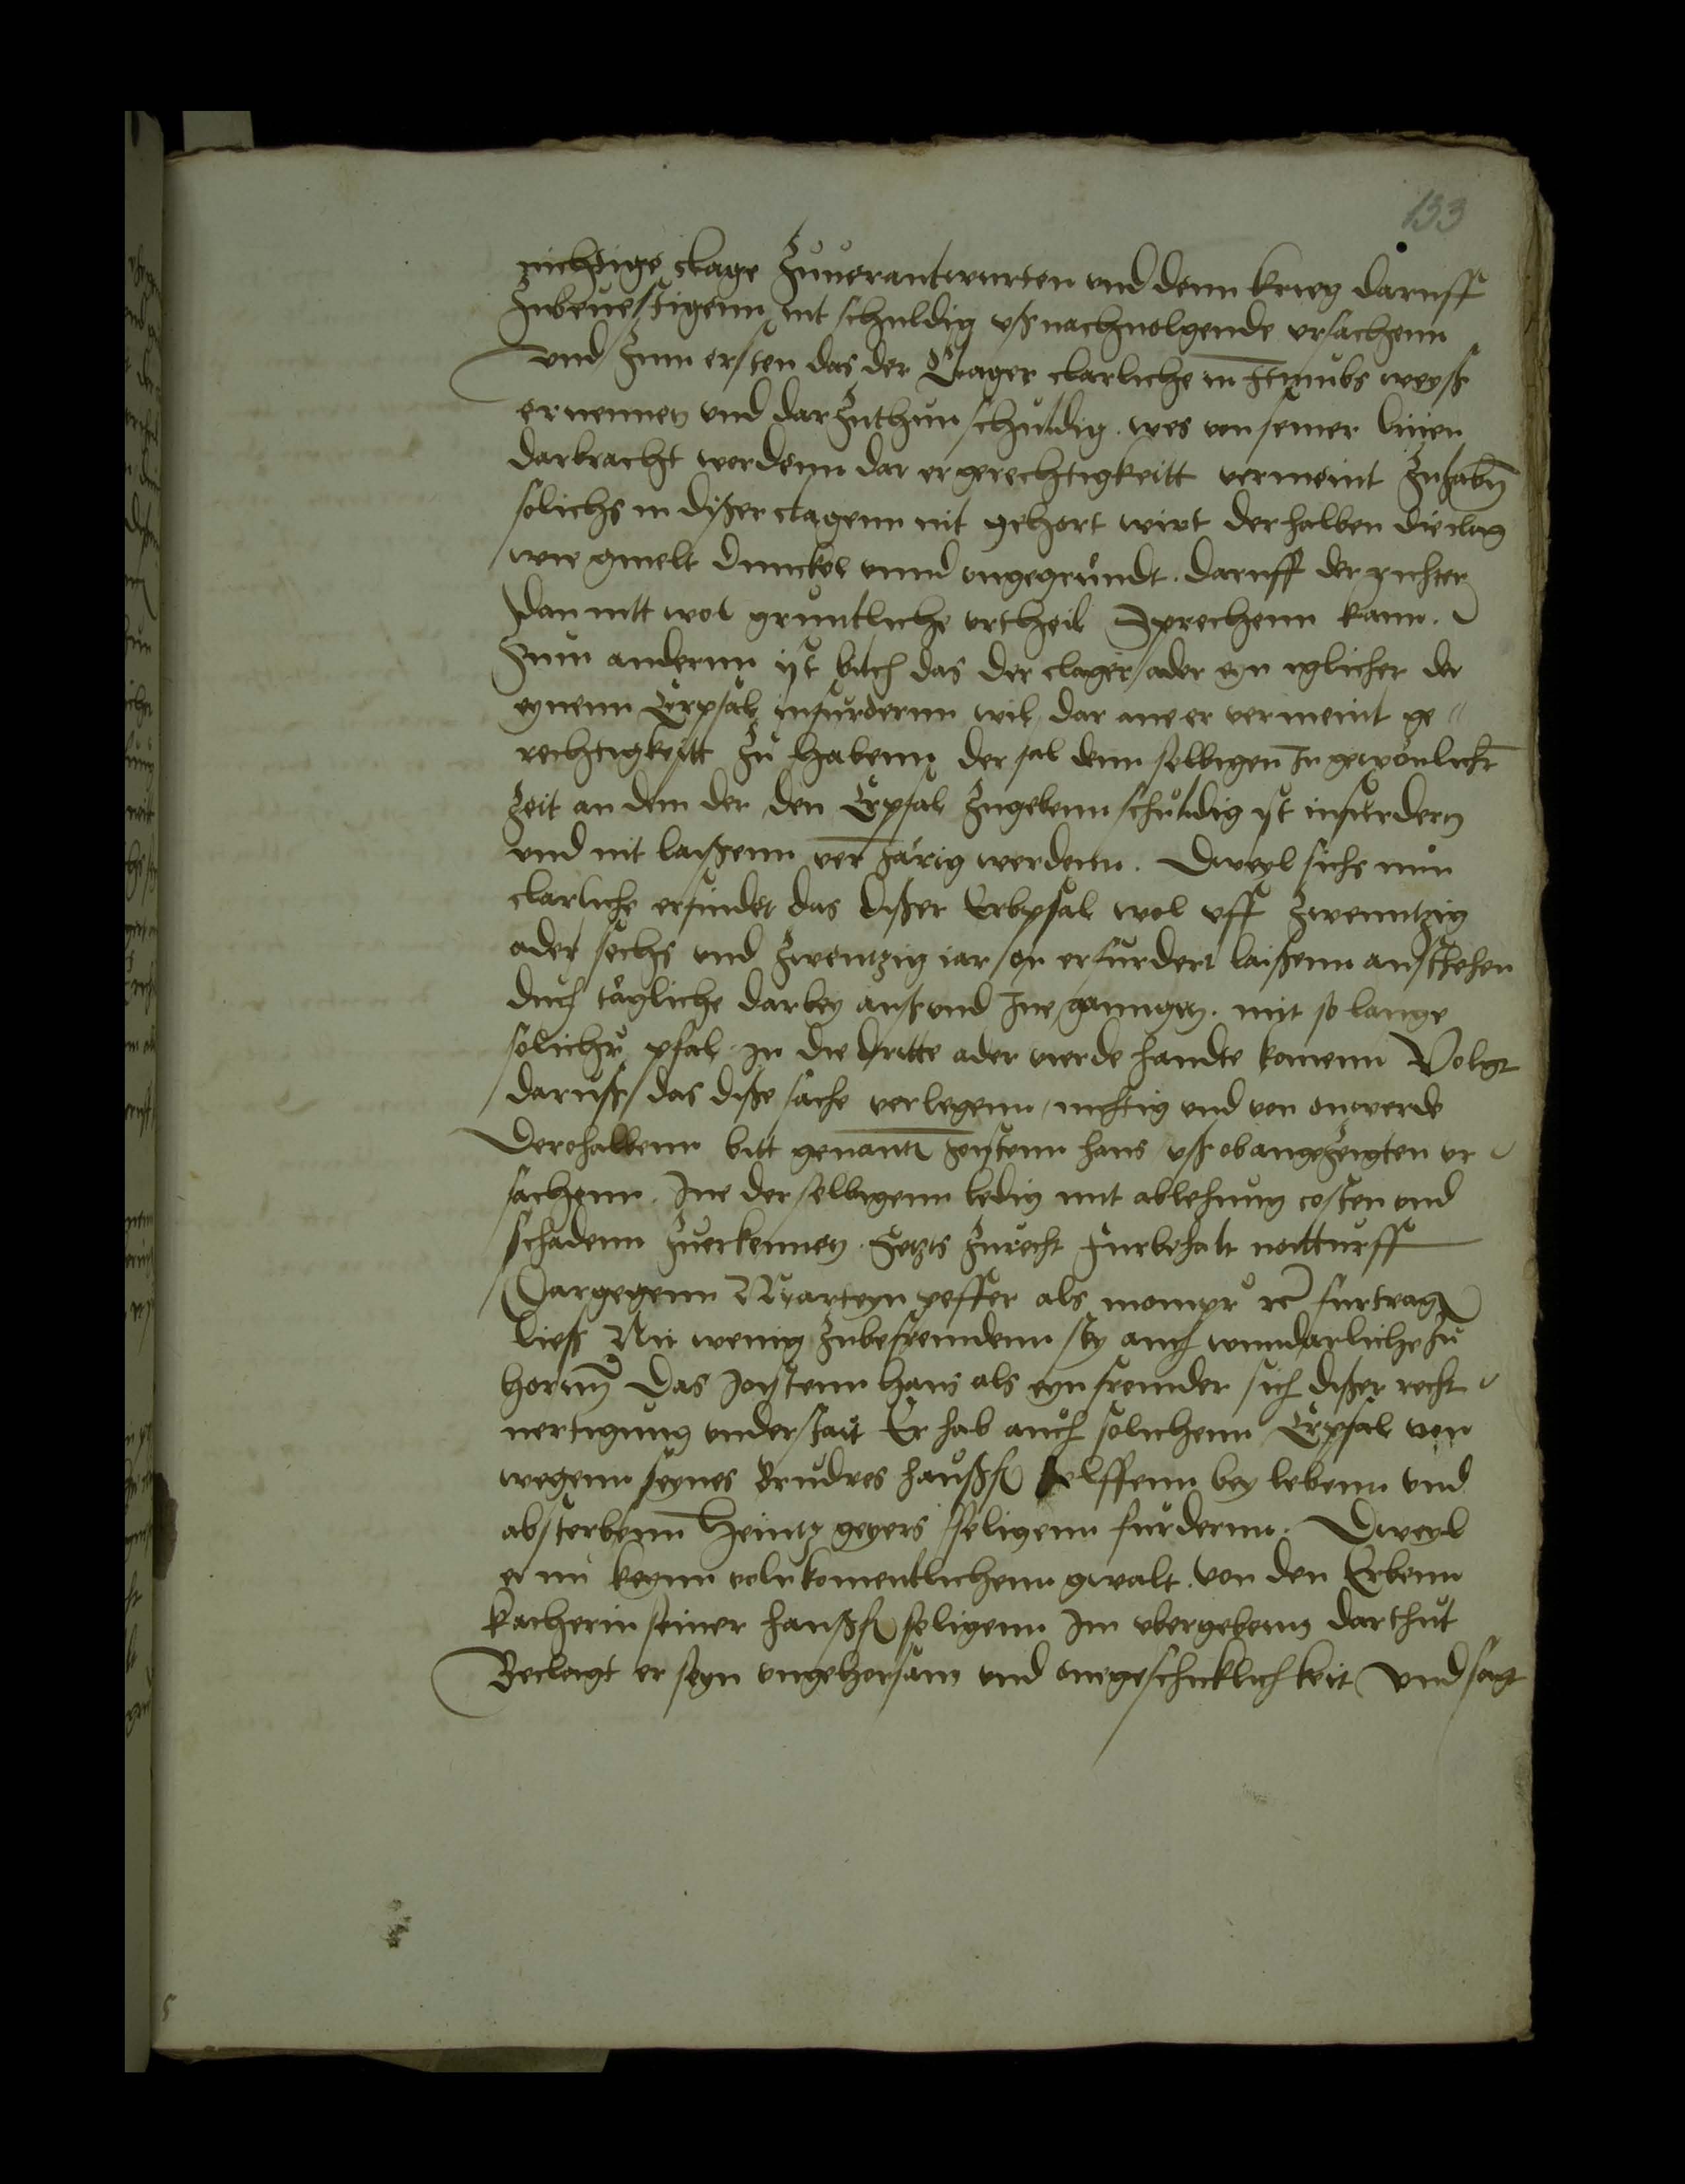 133
nichtige clage zuuerantwurten vnd denn krieg daruff
zubeuestigenn nit schuldig vß nachuolgende vrsachenn
vnd zum ersten das der Clager clarliche in weyß
ernennen vnd dar zuthun schuldig. wes von seiner linien
darbracht werdenn dar er gerechtigkeitt vermeint zuhabn
solichs in dißer clagenn nit gehort wirt derhalben die clag
wie gmelt dunckel vnnd ongegrundt. daruff der richter
dan nitt wol gruntliche vrtheil Sprechenn kann.
Zum andernn ist das der clager ader eyn iglicher der
eynenn Erpfal infurdernn wil, dar ane er vermeint ge "
rechtigkeitt zu habenn der sal denn selbigen In gewonlicher
Zeit an dem der den Erpfal zugebenn schuldig yst infurdern
vnd nit laißenn ver Järig werdenn. Dweyl sichs nun
clarliche erfindet das dißer Erbpfal wol vff zwenntzig
ader sechs vnd zwentzig iar on erfurdert laißenn anstehen
duch tägliche darbey auß vnd Ine ganngen. mit so lange
solicher pfal In die dritte ader vierde handte komenn Volgt
daruß das diße sache verlegenn, nichtig vnd von onwerde
Derohalbenn bitt genante Joystenn hans vß obangezeigten vr
sachenn. Ine der selbigenn ledig mit ablehnung costen vnd
schadenn zuerkennen. Setzts zurecht furbehalt notturff
Dargegenn Marteyn peffer als mompar rc furtragen
ließ Nit wenig zubefremdenn sey auch wundarliche zu
horenn Das Joystenn hans als eyn fremder sich dißer recht
uertigung vnderstait Er hab auch solichenn Erpfal von
wegenn seynes Brudres helffenn bey lebenn vnd
absterbenn Heintz geyers seligenn furdernn. Dweyl
er nu keynn volnkomentlichenn gwalt. von den Erbenn
kacherin seiner seligenn Im vbergebenn darthut
Beclagt er seyn vngehorsam vnd ongeschicklichkeit vnd sagt